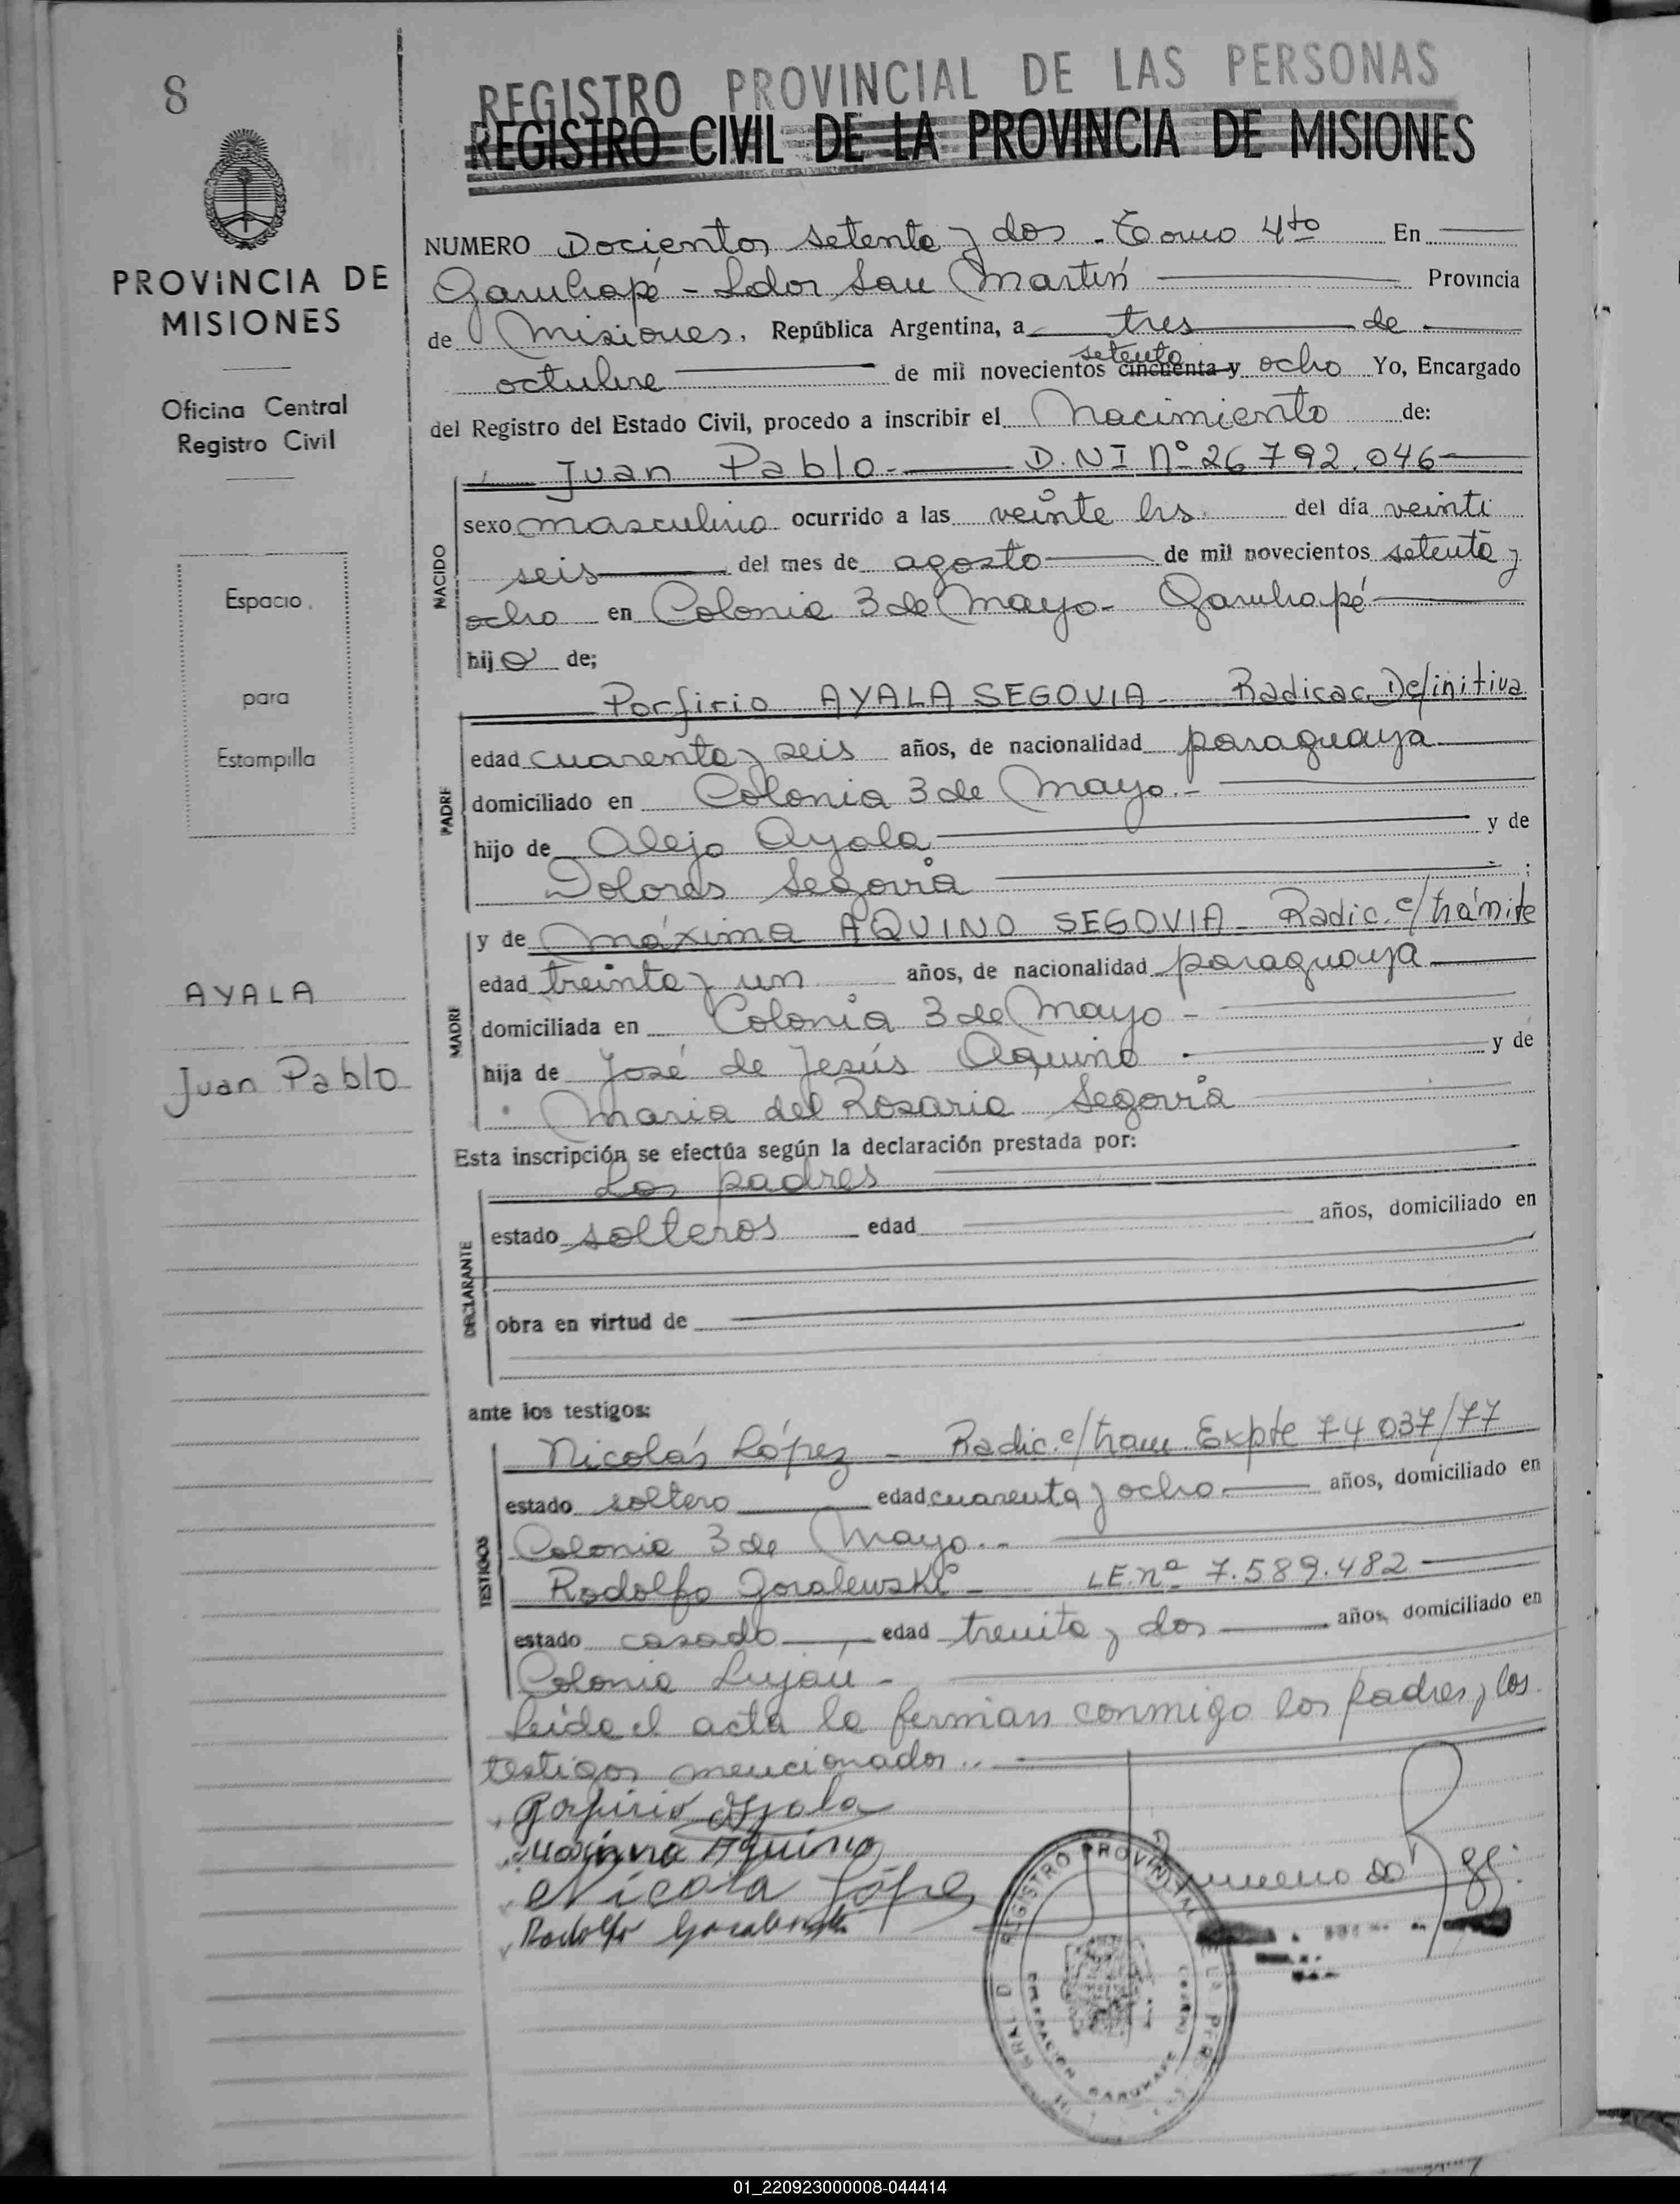 8
REGISTRO PROVINCIAL DE LAS PERSONAS
REGISTRO CIVIL DE LA PROVINCIA DE MISIONES
PROVINCIA DE
MISIONES
Oficina Central
Registro Civil
Espacio
para
Estampilla
AYALA
Juan Pablo
NUMERO Docientos setenta y dos - Tomo 4to En
Garuhapé - Ldor San Martín Provincia
de Misiones, República Argentina, a tres de
octubre de mil novecientos cincuenta y setenta ocho Yo, Encargado
del Registro del Estado Civil, procedo a inscribir el Nacimiento de:
Juan Pablo - D.NI Nº 26 792.046
NACIDO
sexo masculino ocurrido a las veinte hs. del día veinti
seis del mes de agosto de mil novecientos setenta y
ocho en Colonia 3 de Mayo - Garuhapé
hijo de;
PADRE
Porfirio AYALA SEGOVIA - Radicac. Definitiva
edad cuarenta y seis años, de nacionalidad paraguaya
domiciliado en Colonia 3 de Mayo.-
hijo de Alejo Ayala y de
Dolores Segovia ;
MADRE
y de Máxima AQUINO SEGOVIA - Radic. e/trámite
edad treinta y un años, de nacionalidad paraguaya
domiciliada en Colonia 3 de Mayo -
hija de José de Jesús Aquino y de
Maria del Rosario Segovia
Esta inscripción se efectúa según la declaración prestada por:
DECLARANTE
Los padres
estado solteros edad años, domiciliado en
obra en virtud de
ante los testigos:
TESTIGOS
Nicolás López - Radic. e/tram. Expte 74 037/77
estado soltero edad cuarenta y ocho años, domiciliado en
Colonia 3 de Mayo.-
Rodolfo Goralewski - LE. nº 7.589.482
estado casado edad treinta y dos años, domiciliado en
Colonia Luján -
Leida el acta la firman conmigo los padres y los
testigos mencionados..
Porfirio Ayala
Maxima Aquino
Nicola López
Rodolfo Goralewski
REGISTRO PROVINCIAL DE LAS PERS
DELEGACION GARUHAPE
01_220923000008-044414